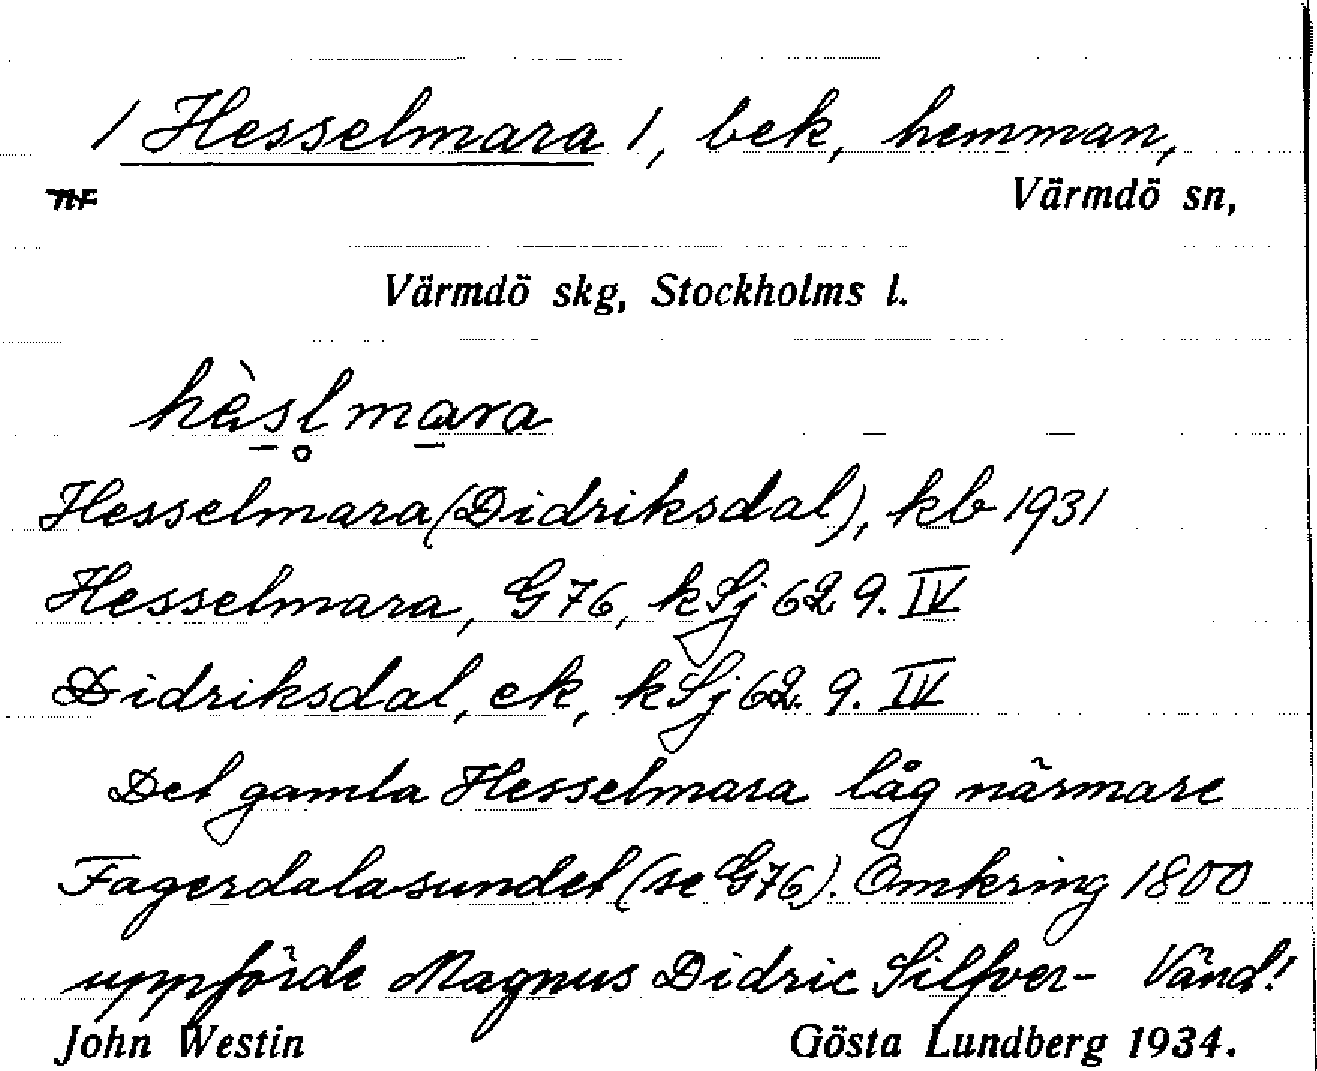 / Hesselmara /, bek, hemman,
Värmdö sn,
Värmdö skg, Stockholms l.
hèsl̥mara
Hesselmara (Didriksdal), kb 1931
Hesselmara, G76, kSj 62 9. IV
Didriksdal, ek, kSj 62 9. IV
Det gamla Hesselmara låg närmare
Fagerdalasundet (se G76). Omkring 1800
uppförde Magnus Didric Silfver- Vänd!
John Westin Gösta Lundberg 1934.